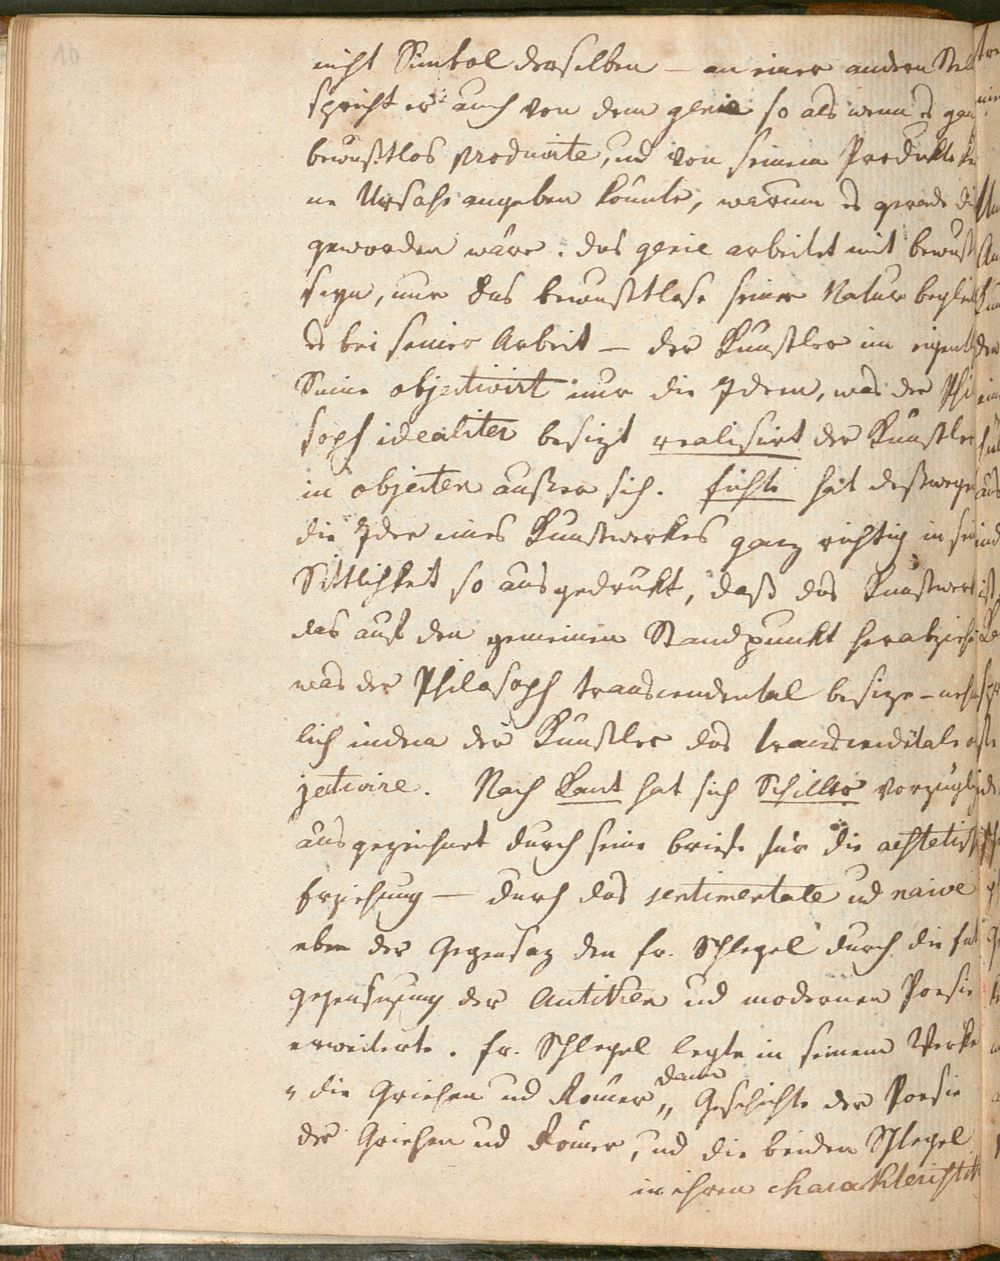 10
nicht Simbol derselben – an einer andern Stel
spricht er auch von dem genie so als wenn es gan
bewußtlos producirte, und von seinem Produkte kei
ne Ursache angeben könnte, warum es gerade die
geworden wäre. das genie arbeitet mit bewußt
seyn, nur das bewußtlose seiner Natur begleit
es bei seiner Arbeit – der Künstler im eigentl
Sinne objectivirt nur die Ideen, was der Phi
soph idealiter besizt realisirt der Künstler
in objecten außer sich. fichte hat deßwegen
die Idee eines Kunstwerkes ganz richtig in sei
Sittlichkeit so ausgedrükt, daß das Kunstwerk
das auf den gemeinen Standpunkt herabziehe
was der Philosoph transcendental besize – nehm
lich indem der Künstler das transcendentale ob
jectivire. Nach Kant hat sich Schiller vorzügli
ausgezeichnet durch seine briefe für die aesthetisch
Erziehung – durch das sentimentale und naive
eben der Gegensaz den fr. Schlegel durch die Ent
gegensezung der Antiken und modernen Poesie
erweiterte. fr. Schlegel legte in seinem Werke
„die Griechen und Römer„ dann Geschichte der Poesie
der Griechen und Römer, und die beiden Schlegel
in ihren charakteristik